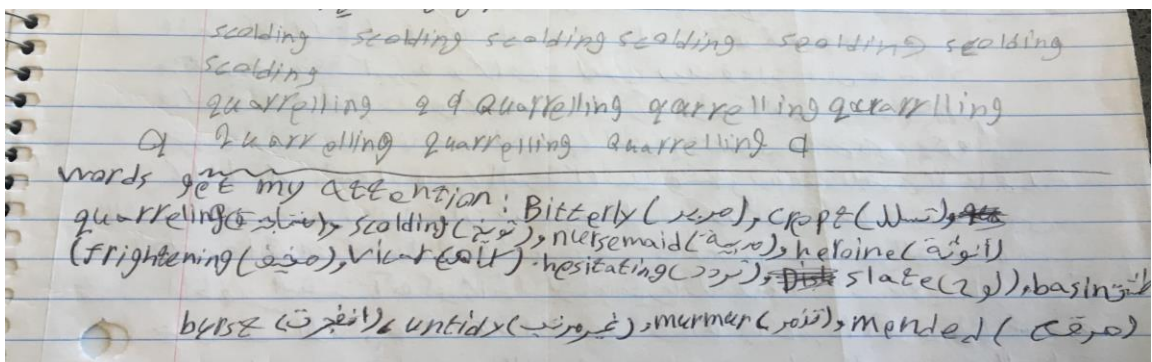 scolding scolding scolding scolding scolding scolding
scolding
quarrelling q q Quarrelling qarrelling qurarrlling
Q quarrelling quarrelling Quarrelling q
words get my attention: Bitterly (مرير), cropt (تسلل),
quarreling, scolding (توبيخ), nursemaid (مربية), heroine (أنوثة)
(frightening (مخيف), vicar (كاهن). hesitating (تردد), slate (لوح), basin طشت
burst (انفجرت), untidy (غير مرتب), murmur (تذمر), mended (مرقع)